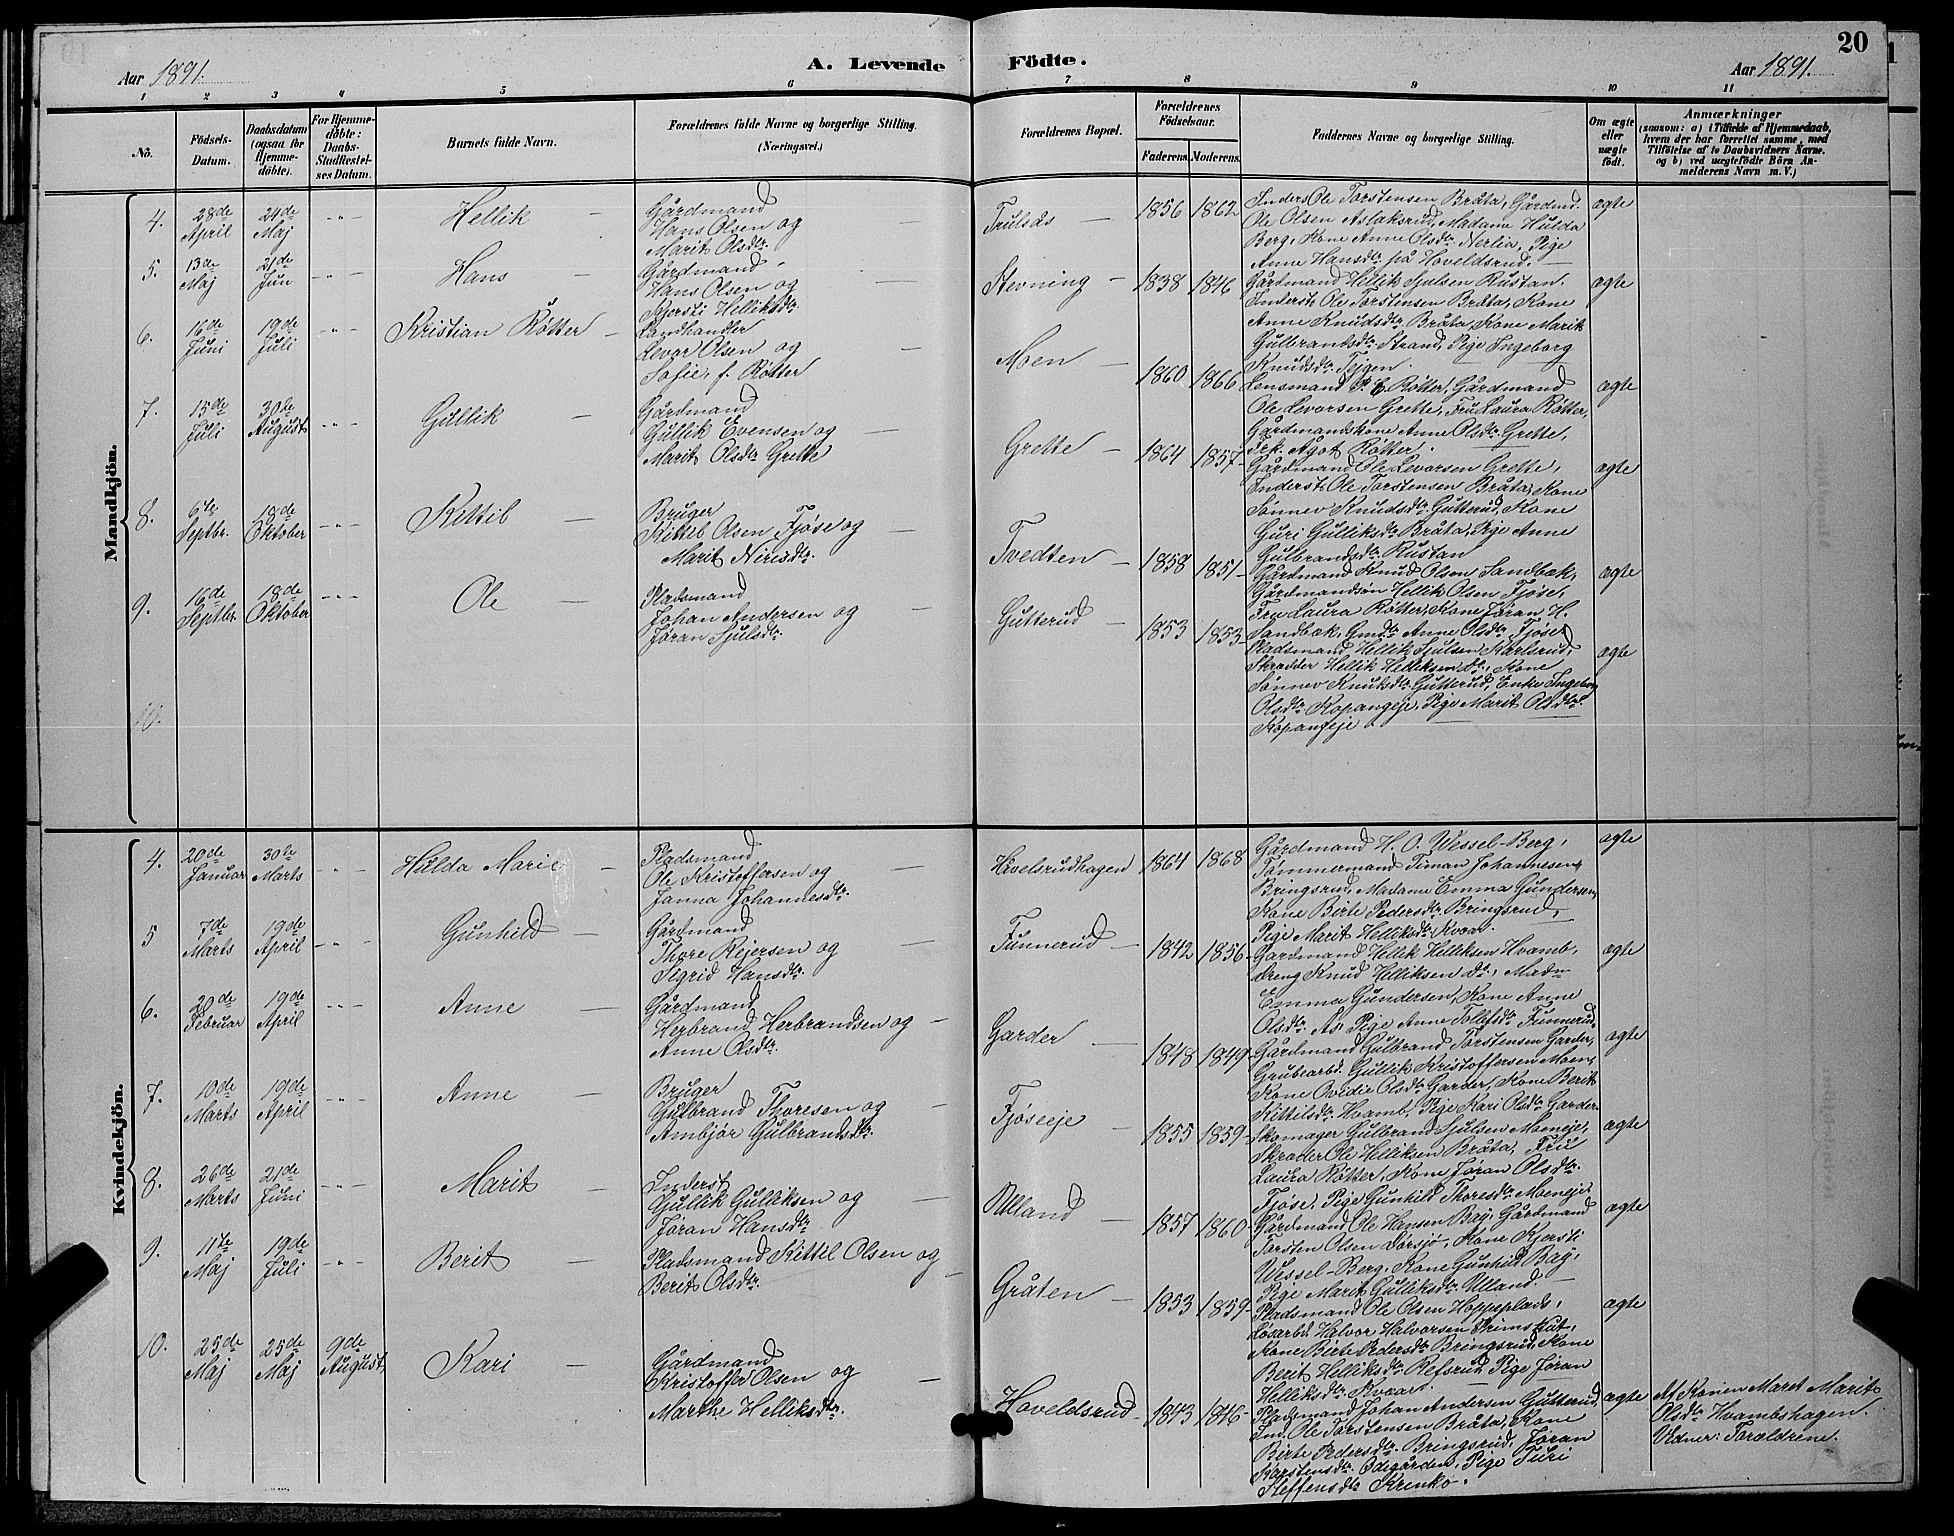 20
Aar 1891.
A. Levende Födte.
Aar 1891.
1 2 3 4 5 6 7 8 9 10 11
No.
Födsels-
Datum.
Daabsdatum
(ogsaa for
Hjemme-
döbte).
For Hjemme-
döbte:
Daabs-
Stadfæstel-
ses Datum.
Barnets fulde Navn.
Forældrenes fulde Navne og borgerlige Stilling.
(Næringsvei.)
Forældrenes Bopæl.
Forældrenes
Födselsaar.
Faderens. Moderens.
Faddernes Navne og borgerlig Stilling.
Om ægte
eller
uægte
födt.
Anmærkninger
(saasom: a) i Tilfælde af Hjemmedaab,
hvem der har forrettet samme, med
Tilföielse af to Daabsvidners Navne.
og b) ved uægtefödte Börn An-
melderens Navn m. V.)
Mandkjön.
4. 28de April 24de Maj -"- Hellik
Gårdmand
Hans Olsen og
Marit Olsdtr.
Trulsås 1856 1862
Inders Ole Torstensen Bråta, Gårdmd.
Ole Olsen Aslaksrud, Madame Hulda
Berg, Kone Anne Olsdtr. Nerlia, Pige
Anne Hansdtr. på Hoveldsrud.
ægte
5. 13de Maj 21de Jun -"- Hans
Gårdmand
Hans Olsen og
Kjersti Helliksdtr.
Stevning 1838 1846
Gårdmand Hellik Sjulsen Rustan.
Inderst Ole Torstensen Bråta, Kone
Anne Knudsdtr. Bråta, Kone Marit
Gulbrandsdtr. Strand, Pige Ingeborg
Knudsdtr. Tejgen.
ægte
6. 16de Juni 19de Juli -"- Kristian Røtter
Landhandler
Levor Olsen og
Sofie, f. Røtter
Moen 1860 1866
Lensmand P. E. Røtter, Gårdmand
Ole Levorsen Grette, Fru Laura Røtter,
Gårdmandskone Anne Olsdtr. Grette,
Frk. Ågot Røtter.
ægte
7. 15de Juli 30te August -"- Gullik
Gårdmand
Gullik Evensen og
Marit Olsdtr. Grette
Grette 1864 1857
Gårdmand Ole Levorsen Grette,
Inderst Ole Torstensen Bråta, Kone
Sønnev Knudsdtr. Gutterud, Kone
Guri Gulliksdtr. Bråta, Pige Anne
Gulbrandsdtr. Rustan
ægte
8. 6te Septbr. 18de Oktober -"- Kittil
Bruger
Kittil Olsen Tjøse og
Marit Nirisdtr.
Tvedten 1858 1851
Gårdmand Knud Olsen Sandbæk,
Gårdmandsøn Hellik Olsen Tjøse,
Fru Laura Røtter, Kone Jøran H.
Sandbæk, Gmdtr. Anne Olsdtr. Tjøse
ægte
9. 16de Septbr. 18de Oktober -"- Ole
Pladsmand
Johan Andersen og
Jøran Sjulsdtr.
Gutterud 1853 1853
Pladsmand Hellik Sjulsen Karlsrud,
Skrædder Hellik Helliksen do., Kone
Sønnev Knutsdtr. Gutterud, Enke Ingeborg
Olsdtr. Kopangeje, Pige Marit Olsdtr.
Kopangeje
ægte
10.
Kvindekjön.
4. 20de Januar 30te Marts -"- Hilda Marie
Pladsmand
Ole Kristoffersen og
Janna Johannesdtr.
Hävelsrudhagen 1864 1868
Gårdmand H. O. Wessel-Berg,
Tømmermand Timan Johannesen
Bringsrud, Madame Emma Gundersen,
Kone Birte Pedersdtr. Bringsrud,
Pige Marit Helliksdtr. Kvar.
ægte
5 7de Marts 19de April -"- Gunhild
Gårdmand
Thore Rejersen og
Sigrid Hansdtr.
Funnerud 1842 1856
Gårdmand Hellik Helliksen Hvamb,
dreng Knud Helliksen do., Madm
Emma Gundersen, Kone Anne
Olsdtr. As, Pige Anne Tollefsdtr. Funnerud
ægte
6. 20de Februar 19de April -"- Anne
Gårdmand
Herbrand Herbrandsen og
Anne Olsdtr.
Garder 1848 1849
Gårdmand Gulbrand Torstensen Garder,
Grubearbd. Gullik Kristoffersen Moen,
Kone Ovidie Olsdtr. Garder, Kone Berit
Kittilsdtr. Hvamb, Pige Kari Olsdtr. Garder
ægte
7. 10de Marts 19de April -"- Anne
Bruger
Gulbrand Thoresen og
Ambjør Gulbrandsdtr.
Tjøseeje 1855 1859
Skomager Gulbrand Sjulsen Moeneje,
Skræder Ole Helliksen Bråta, Fru
Laura Røtter, Kone Jøran Olsdtr.
Tjøse, Pige Gunhild Thoresdtr. Moeneje
ægte
8. 26de Marts 21de Juni -"- Marit
Inderst
Gullik Gulliksen og
Jøran Hansdtr.
Ulland 1857 1860
Gårdmand Ole Hansen Bøy, Gårdmand
Torsten Olsen Dørsjø, Kone Kjersti
Wessel-Berg, Kone Gunhild Bøy,
Pige Marit Gulliksdtr. Ulland.
ægte
9. 11te Maj 19de Juli -"- Berit
Pladsmand Kittil Olsen og
Berit Olsdtr.
Gråten 1853 1859
Pladsmand Ole Olsen Hoppeplads,
Løsarbd. Halvor Halvorsen Primskut,
Kone Birte Pedersdtr. Bringsrud, Kone
Berit Helliksdtr. Refsrud, Pige Jøran
Helliksdtr. Kvar.
ægte
10. 25de Maj 25de Maj 9de August Kari
Gårdmand
Kristoffer Olsen og
Marthe Helliksdtr.
Hoveldsrud 1843 1846
Pladsmand Johan Andersen Gutterud,
Ind. Ole Torstensen Bråta, Kone
Birte Pedersdtr. Bringsrud, Jøran
Karstensdtr. Ødegården, Pige Turi
Steffensdtr. Krenko.
ægte
Af Konen Maret Marit
Olsdtr. Hvambshagen.
Vidner: Forældrene.